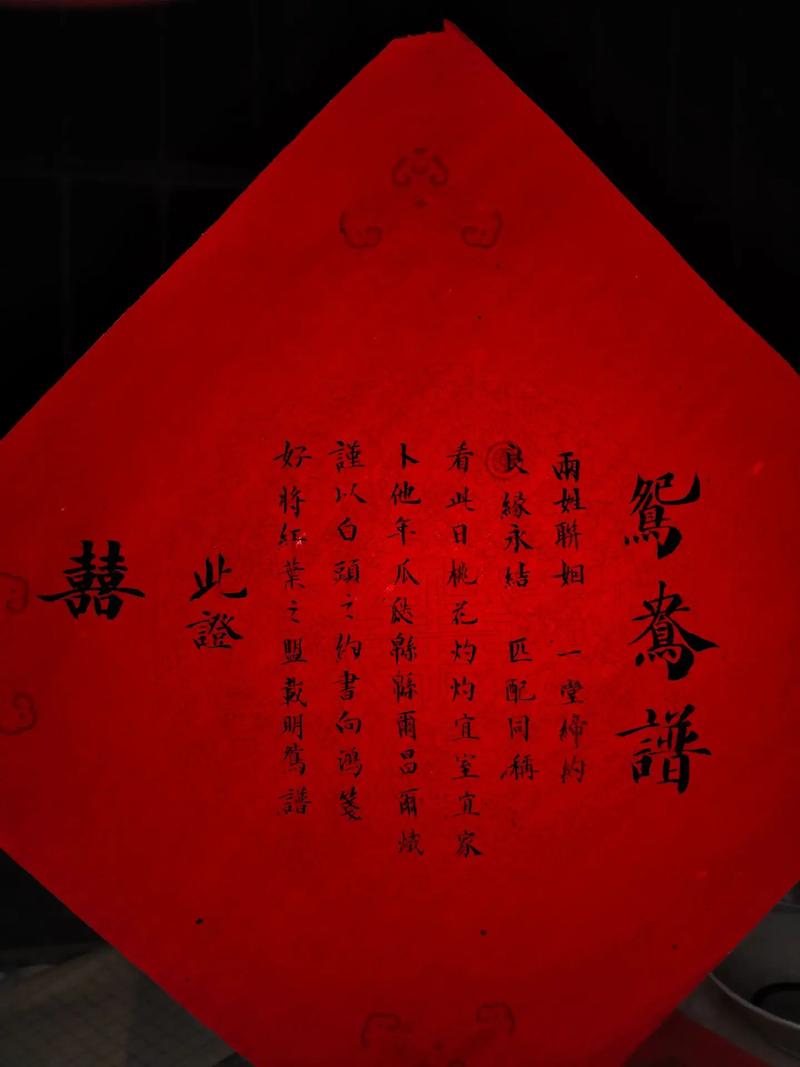 鴛鴦譜
兩姓聯姻 一堂締約
良緣永結 匹配同稱
看此日桃花灼灼宜室宜家
卜他年瓜瓞緜緜爾昌爾熾
謹以白頭之約書向鴻箋
好將紅葉之盟載明鴛譜
此證
囍